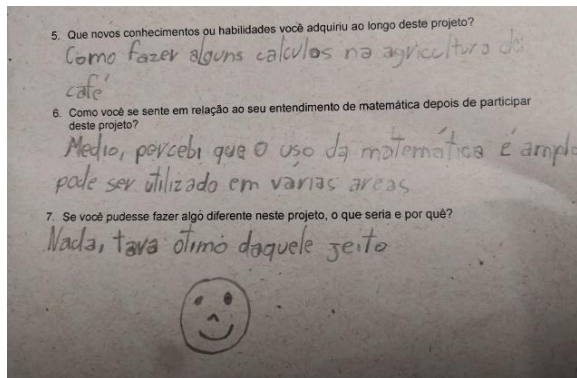 5. Que novos conhecimentos ou habilidades você adquiriu ao longo deste projeto?
Como fazer alguns calculos na agricultura do
café
6. Como você se sente em relação ao seu entendimento de matemática depois de participar
deste projeto?
Medio, percebi que o uso da matemática é amplo
pode ser utilizado em várias areas
7. Se você pudesse fazer algo diferente neste projeto, o que seria e por quê?
Nada, tava otimo daquele jeito